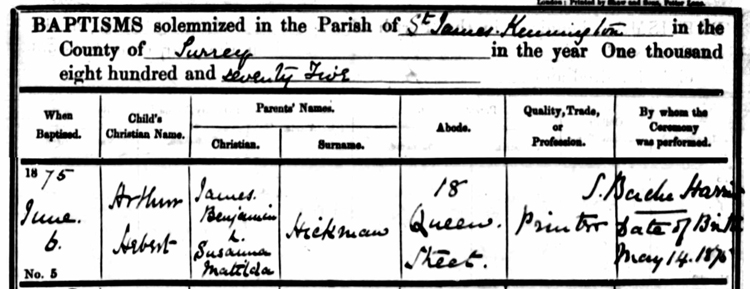 London: Printed by Shaw and Sons, Fetter Lane.
BAPTISMS solemnized in the Parish of St James Kennington in the
County of Surrey in the year One thousand
eight hundred and seventy Five
When Baptised.
Child's Christian Name.
Parents' Names.
Christian.
Surname.
Abode.
Quality, Trade, or Profession.
By whom the Ceremony was performed.
1875
June.
6.
No. 5
Arthur
Hebert
James
Benjamin
&
Susanna
Matilda
Hickman
18
Queen
Street.
Printer
S. Bache Harris
Date of Birth
May 14. 1875